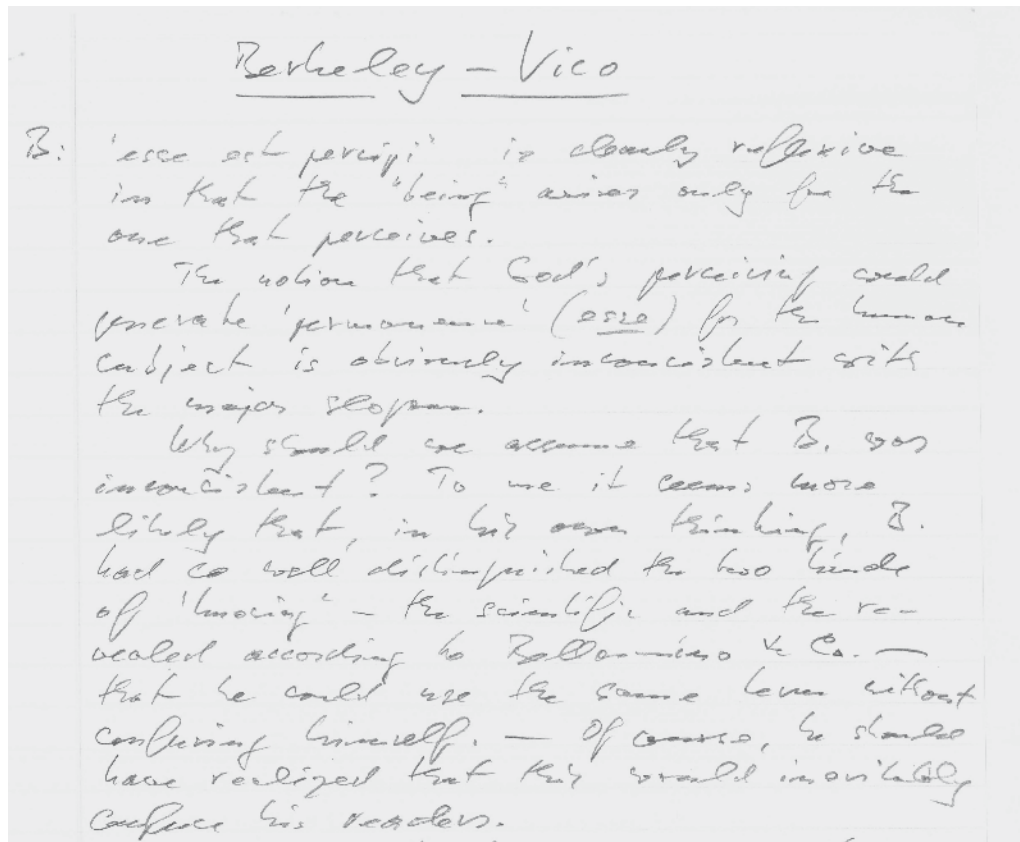 Berkeley – Vico
B: 'esse est percipi' is clearly reflexive
in that the "being" arises only for the
one that perceives.
The notion that God's perceiving could
generate 'permanence' (esse) for the human
subject is obviously inconsistent with
the major slogan.
Why should we assume that B. was
inconsistent? To me it seems more
likely that, in his own thinking, B.
had so well distinguished the two kinds
of 'knowing' – the scientific and the re-
vealed according to Bellarmino & Co. —
that he could use the same term without
confusing himself. — Of course, he should
have realized that this would inevitably
confuse his readers.